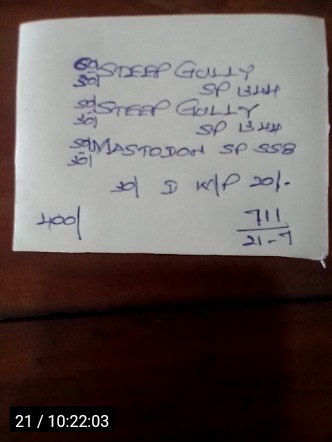 50/ STEEP GULLY
30/ SP 1344
50/ STEEP GULLY
30/ SP 1344
50/ MASTODON SP 558
30/
30/ D W/P 20/-
400/
711
21-7
21 / 10:22:03